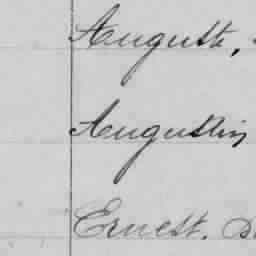 Auguste,
Augustin
Ernest. D